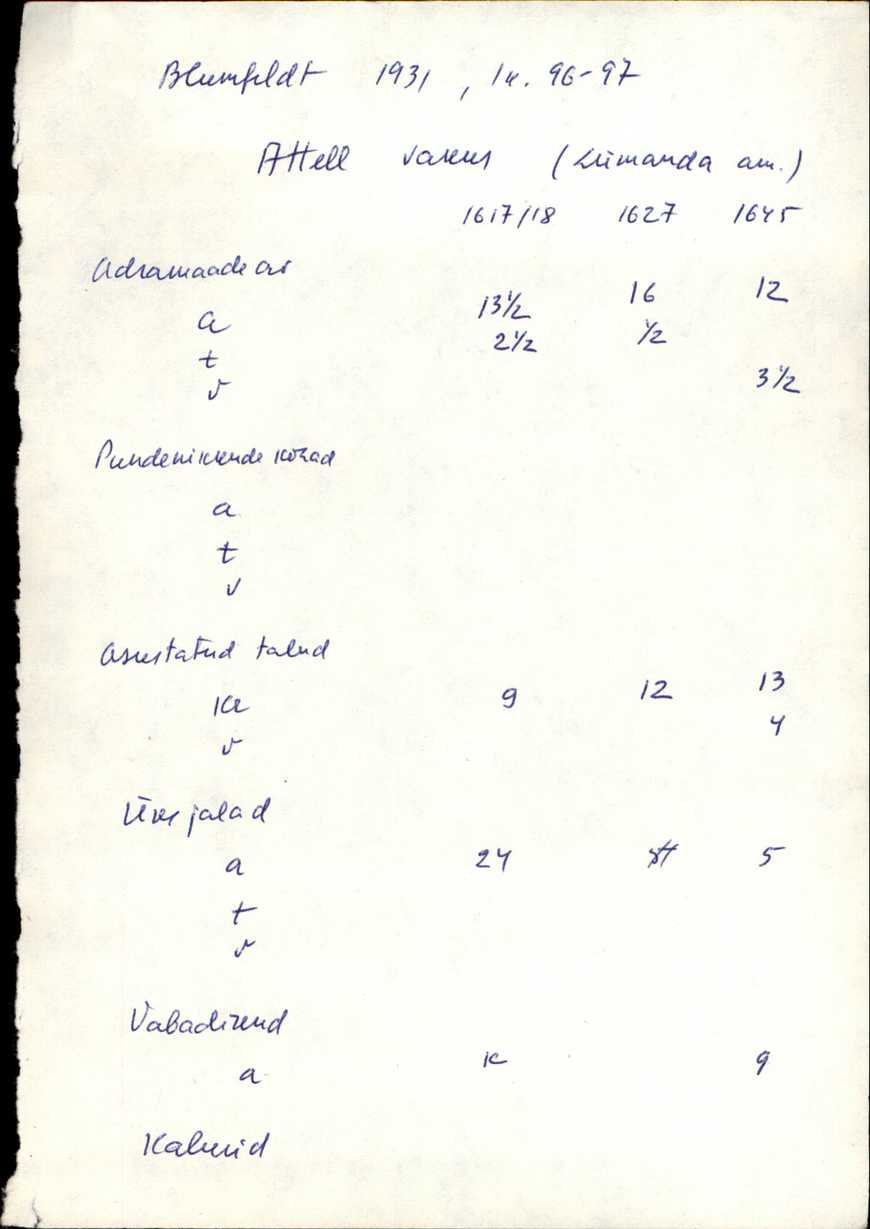 Blumfeldt 1931, lk. 96-97
Attell vakus (Kiimanda am.)
1617/18 1627 1645
Adramaade arv
a 13½ 16 12
t 2½ ½
v 3½
a
t
v
Asustatud talud
kr 9 12 13
v 4
Üksjalad
a 24 5
t
v
Vabadikud
a k 9
Kalurid